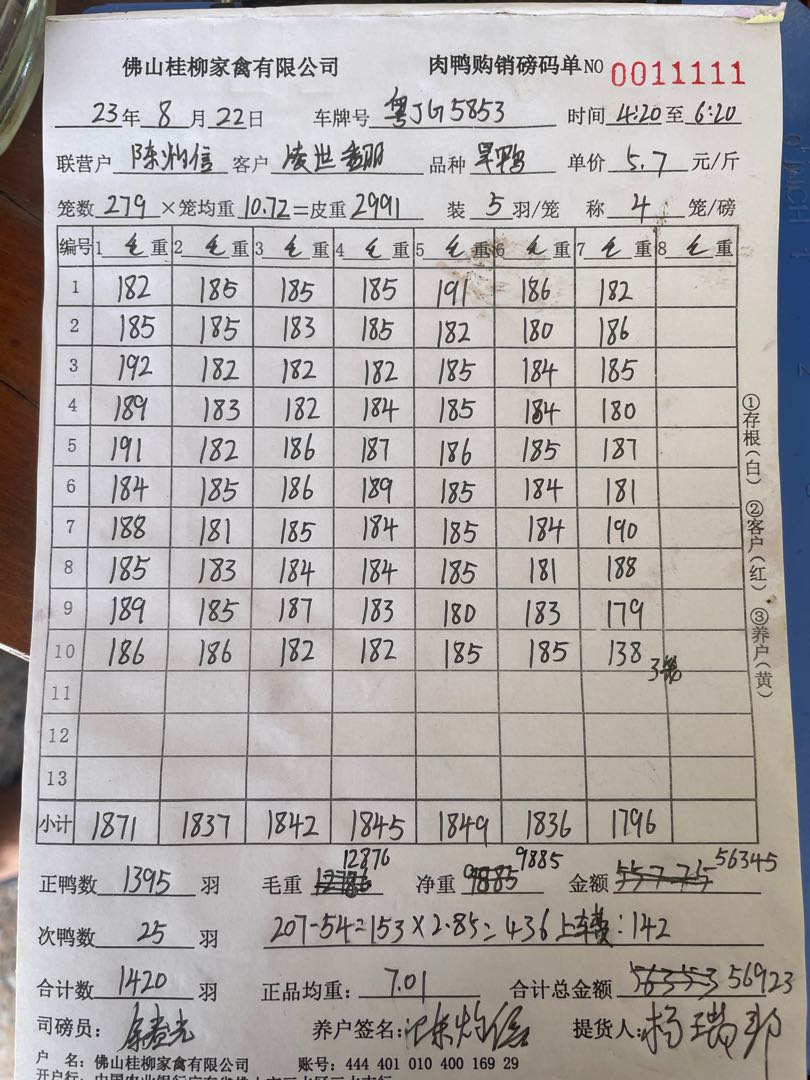 佛山桂柳家禽有限公司 肉鸭购销磅码单 NO 0011111
23年 8月 22日 车牌号 粤JG5853 时间 4:20 至 6:20
联营户 陈灼信 客户 凌世 品种 旱鸭 单价 5.7 元/斤
笼数 279 ×笼均重 10.72 =皮重 2991 装 5 羽/笼 称 4 笼/磅
编号 1 毛 重 2 毛 重 3 毛 重 4 毛 重 5 毛 重 6 毛 重 7 毛 重 8 毛 重
1 182 185 185 185 191 186 182
2 185 185 183 185 182 180 186
3 192 182 182 182 185 184 185
4 189 183 182 184 185 184 180
5 191 182 186 187 186 185 187
6 184 185 186 189 185 184 181
7 188 181 185 184 185 184 190
8 185 183 184 184 185 181 188
9 189 185 187 183 180 183 179
10 186 186 182 182 185 185 138 3笼
11
12
13
小计 1871 1837 1842 1845 1849 1836 1796
①存根(白) ②客户(红) ③养户(黄)
正鸭数 1395 羽 毛重 12876 净重 9885 金额 56345
次鸭数 25 羽 207-54=153×2.85=436 上车费:142
合计数 1420 羽 正品均重: 7.01 合计总金额 56353 56923
司磅员: 养户签名: 陈灼信 提货人: 杨瑞邦
户 名: 佛山桂柳家禽有限公司 账号: 444 401 010 400 169 29